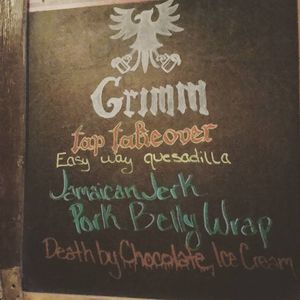 Grimm
tap takeover
Easy way quesadilla
Jamaican Jerk
Pork Belly Wrap
Death by Chocolate, Ice Cream